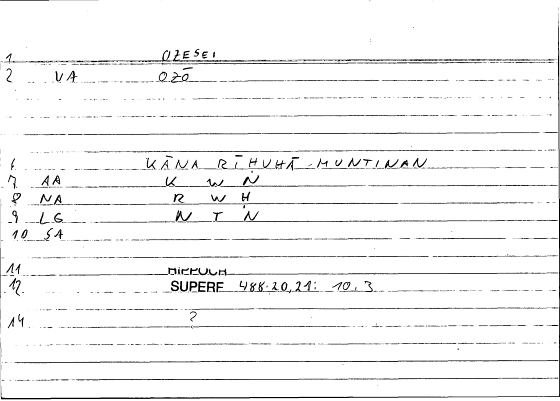 1 OZESEI
2 VA OZŌ
6 KĀNA RĪHUHĀ MUNTINAN
7 AA K W N
8 NA R W H
9 LG N T N
10 SA
11 HIPPUCH
12 SUPERF 488.20,21: 10.3
14 ?